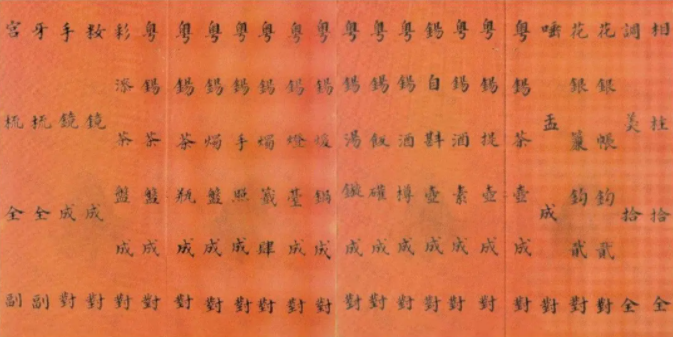 相挂拾全
調羹拾全
花銀帳鈎貳對
花銀簾鈎貳對
唾盂成對
粵錫茶壺成對
粵錫提壺成對
粵錫酒素成對
錫自斟壺成對
粵錫酒樽成對
粵錫飯礶成對
粵錫湯鏇成對
粵錫煖鍋成對
粵錫燈臺成對
粵錫燭籤肆對
粵錫手照成對
粵錫燭盤成對
粵錫茶瓶成對
粵錫茶盤成對
彩漆茶盤成對
妝鏡成對
手鏡成對
牙梳全副
宮梳全副